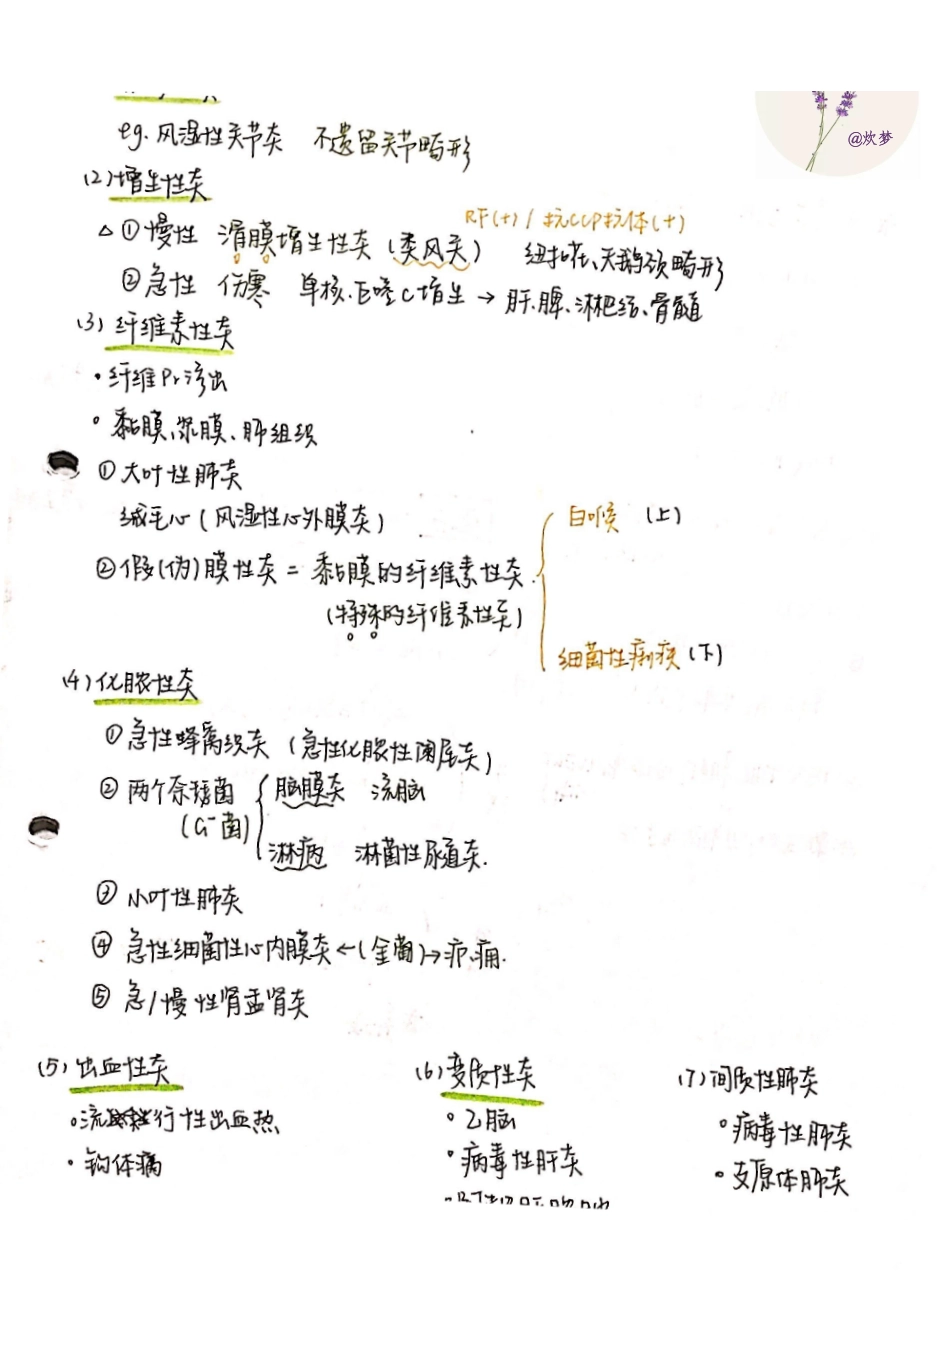 @炊梦
eg. 风湿性关节炎 不遗留关节畸形
(2)增生性炎
RF(+) / 抗CCP抗体(+)
△ ①慢性 滑膜增生性炎 (类风关) 纽扣花、天鹅颈畸形
②急性 伤寒 单核、巨噬C增生 → 肝、脾、淋巴结、骨髓
(3) 纤维素性炎
· 纤维Pr渗出
· 黏膜、浆膜、肺组织
① 大叶性肺炎
绒毛心 (风湿性心外膜炎)
②假(伪)膜性炎 = 黏膜的纤维素性炎
(特殊的纤维素性炎)
白喉 (上)
细菌性痢疾 (下)
(4) 化脓性炎
①急性蜂窝织炎 (急性化脓性阑尾炎)
② 两个奈瑟菌 脑膜炎 流脑
(G⁻菌)
淋病 淋菌性尿道炎.
③ 小叶性肺炎
④ 急性细菌性心内膜炎 ← (金菌) → 疖、痈.
⑤ 急/慢性肾盂肾炎
(5) 出血性炎
·流行性出血热
· 钩体病
(6) 变质性炎
· 乙脑
· 病毒性肝炎
(7) 间质性肺炎
· 病毒性肺炎
· 支原体肺炎